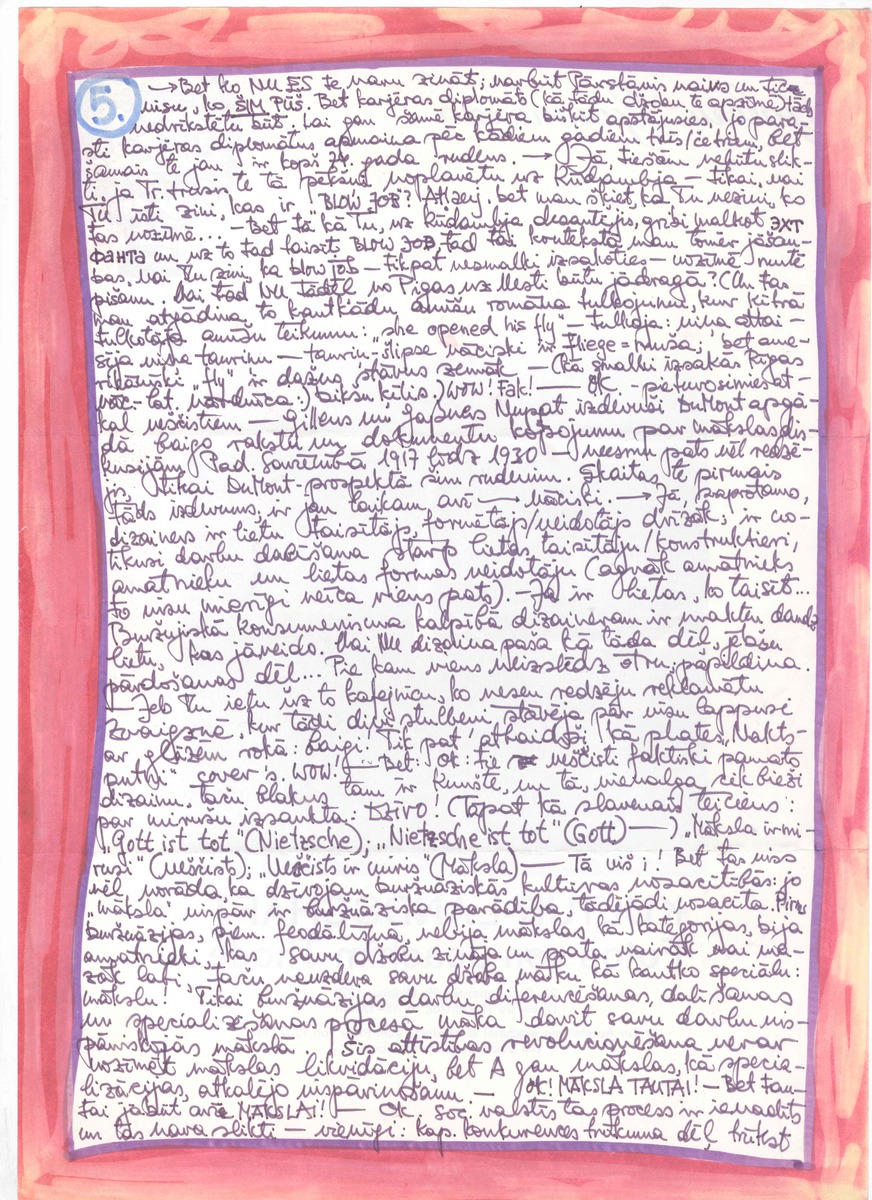 5.
→ Bet ko NU ES te varu zināt; varbūt Pārstāvis naivs un tic
visu, ko ŠIM PŪŠ. Bet karjēras diplomāts (kā tādu džeku te apzīmē) tāds
nedrīkstētu būt, lai gan šamē karjēra būšot apstājusies, jo para-
sti karjēras diplomātus apmaina pēc kādiem gadiem trīs/četriem, bet
šamais te jau ir kopš 74. gada rudens. → Jā, tiešām nebūtu slik-
ti, ja Tr. te tā pēkšņi noplanētu uz Kūdambja – tikai, vai
Tu īsti zini, kas ir "BLOW JOB"? Atļauj, bet man šķiet, ka Tu nezini, ko
tas nozīmē... – Bet tā kā Tu, uz kūdambja desantējis, gribi malkot ЭХТ
ФАНТА un uz to tad laisīt BLOW JOB, tad tai kontekstā man tomēr jāšau-
bās, vai Tu zini, ka blow job – tikpat nesmalki izsakoties – nozīmē mutē
pišanu. Vai tad NU tādēļ no Rīgas uz Uesti būtu jādragā? (Un tas
man atgādina to kautkādu āmīšu romāna tulkojumu, kur ķīrā
tulkotāja āmīšu teikumu: "she opened his fly" – tulkoja: viņa attai-
sīja viņa tauriņu – tauriņ-šlipse vāciski ir Fliege = muša; bet ame-
rikāniski "fly" ir dažus stāvus zemāk – (kā smalki izsakās Rīgas
vāc-lat. vārdnīca:) bikšu ķīlis.) WOW! Fak! — OK – pietuvosimies at-
kal uesčistiem – Gillens un Gapners Nupat izdevuši DuMont apgā-
dā baigo rakstu un dokumentu kopojumu par mākslas dis-
kusijām Pad. Savienībā 1917 līdz 1930 – neesmu pats vēl redzē-
jis, tikai DuMont-prospektā šim rudenim. Skaitās te pirmais
tāds izdevums, ir jau laikam arī — vāciski. → Jā, saprotams,
dizainers ir lietu taisītājs, formētājs/veidotājs drīzāk, ir no-
tikusi darbu dalīšana starp lietas taisītāju/konstruktieri,
amatnieku un lietas formas veidotāju (agrāk amatnieks
to visu mierīgi veica viens pats). – Jā ir lietas, ko taisīt...
Buržujiskā konsumerisma kalpībā dizaineram ir mahten daudz
lietu, kas jāveido. Vai NU dizaina paša kā tāda dēļ, preču
pārdošanas dēļ... Pie kam viens Neizslēdz otru; papildina.
— Jeb Tu iefu uz to kafejnīcu, ko nesen redzēju reklamātu
Zvaigznē, kur tādi divi stulbeņi stāvēja pār visu lappusi
ar glāzēm rokā: baigi! Tik pat athaidoši kā plates "Nakts-
putni" cover's. WOW! — Bet: OK: tie uesčisti faktiski pamato
dizainu, taču blakus tam ir kunste, un tā, vienalga cik bieži
par mirušu izsaukta: DZĪVO! (Tāpat kā slavenais teiciens:
"Gott ist tot" (Nietzsche); "Nietzsche ist tot" (Gott) —) "Māksla ir mi-
rusi" (uesčists); "Uesčists ir miris" (Māksla) — Tā viš¡! Bet tas viss
vēl norāda, ka dzīvojam buržuāziskās kultūras nosacītībās: jo
"māksla" vispār ir buržuāziska parādība, tādējādi nosacīta. Pirms
buržuāzijas, piem. feodālismā, nebija mākslas kā kategorijas, bija
amatnieki, kas savu džobu zināja un prata vairāk vai ma-
zāk labi, taču neuzdeva savu džoba mātku kā kautko speciālu:
mākslu! Tikai buržuāzijas darbu diferencēšanas, dalīšanas
un specializēšanas procesā māka davit savu darbu vis-
pāriskojās mākslā. Šīs attīstības revolucionēšana nevar
nozīmēt mākslas likvidāciju, bet A gan mākslas, kā specia-
lizācijas, atkalējo vispārināšanu. – OK! MĀKSLA TAUTAI! – Bet tau-
tai jābūt arīE MĀKSLAI! — OK, soc. valstīs tas process ir ievadīts
un tas nava slikti – vienīgi: kap. konkurences trūkuma dēļ trūkst